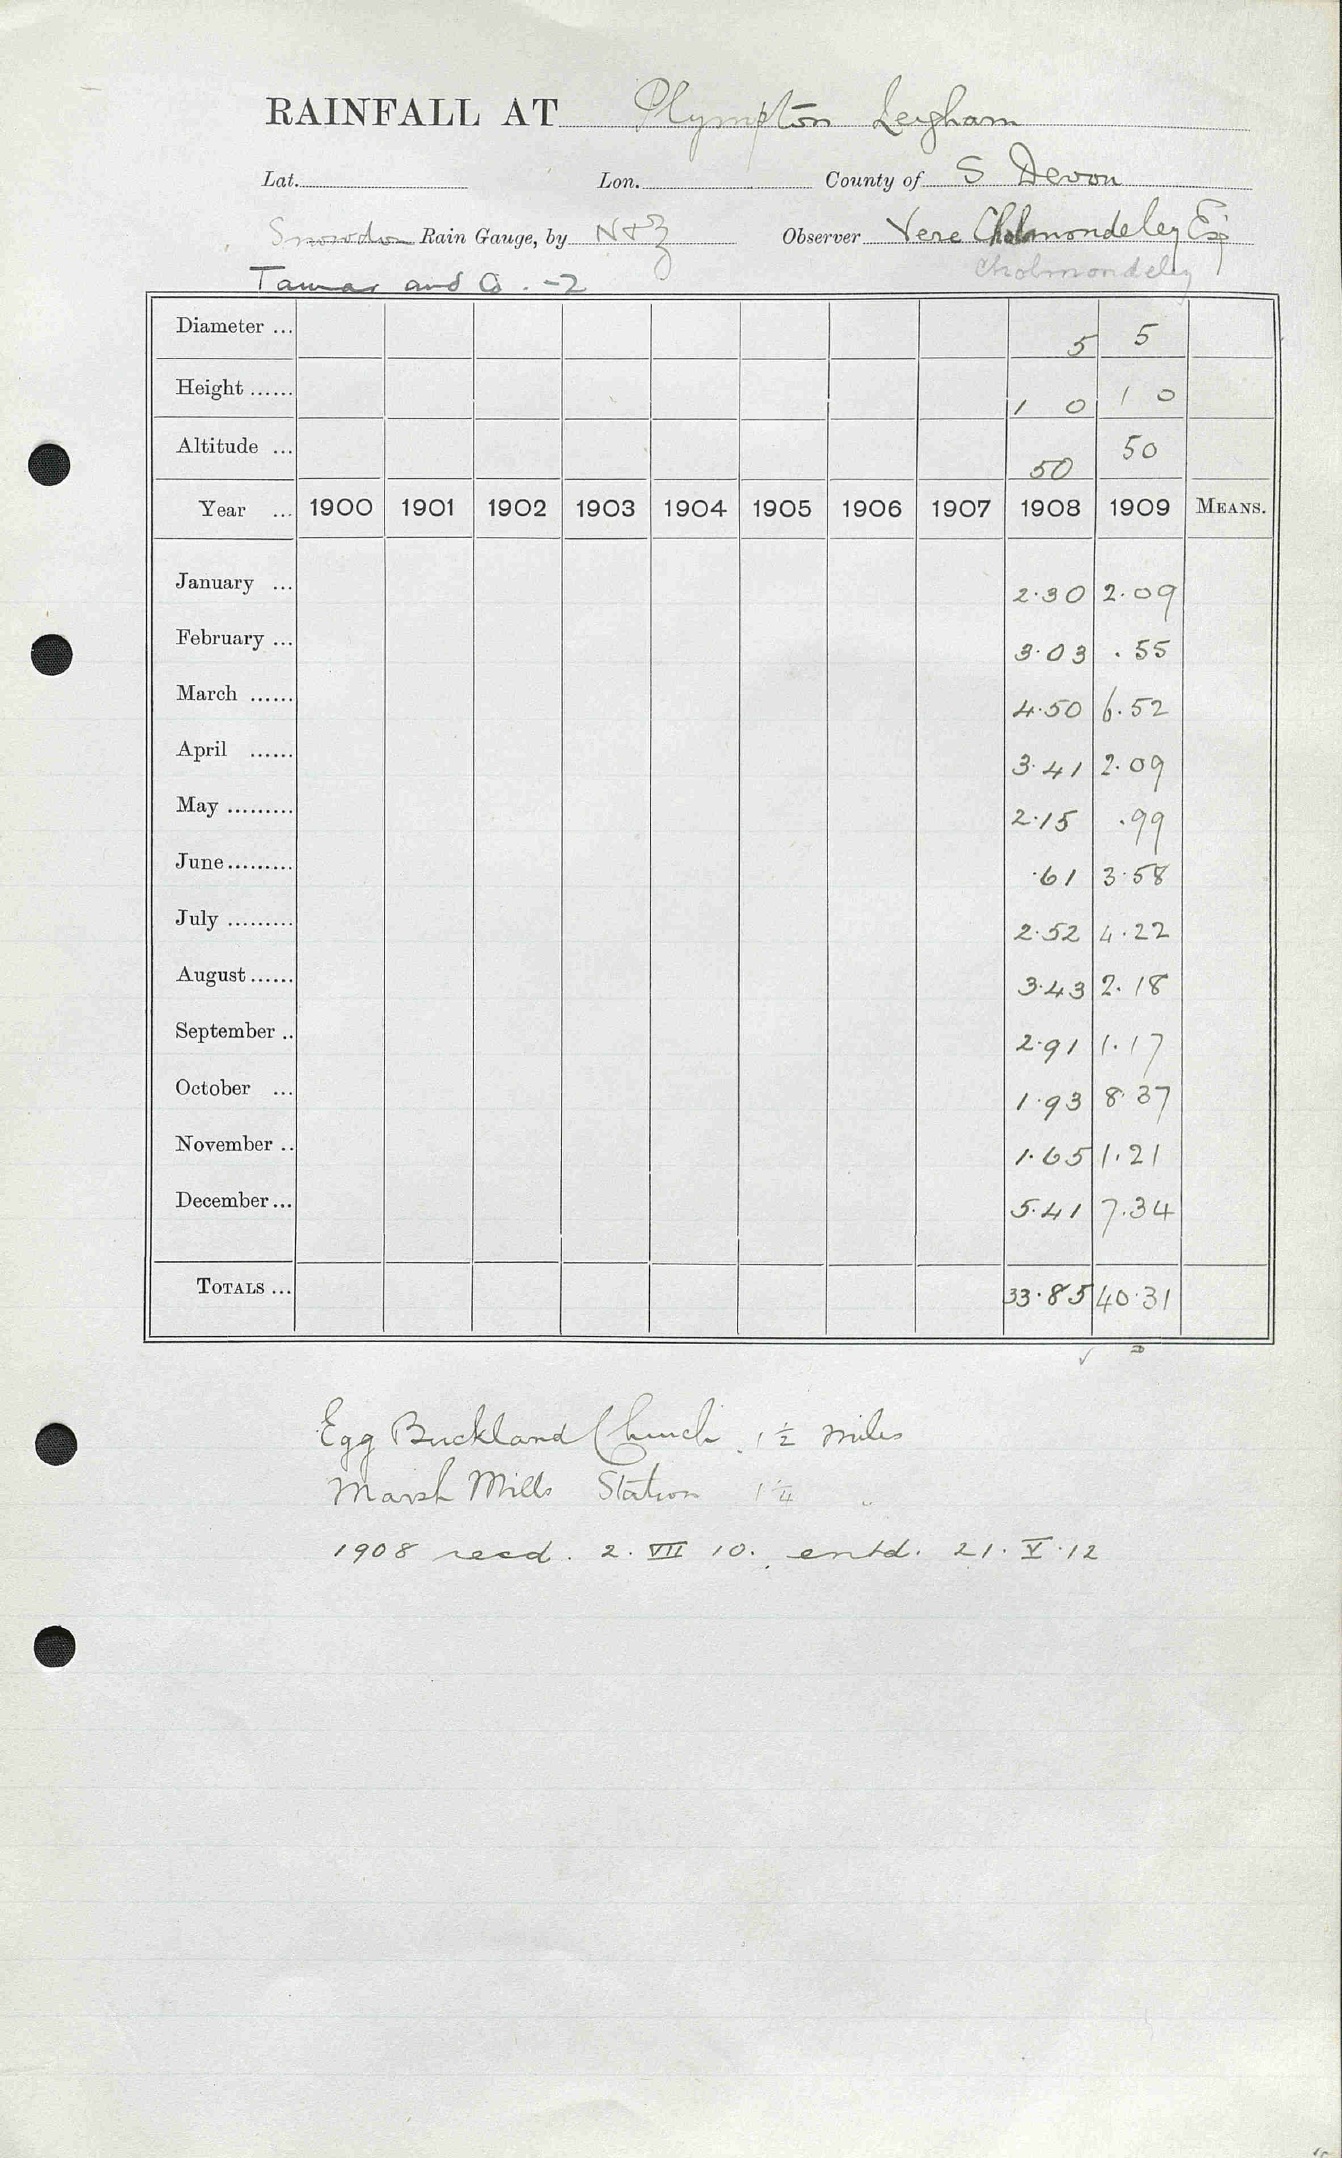 RAINFALL AT Plympton Leigham
Lat. Lon. County of S Devon
Snowdon Rain Gauge, by N & Z Observer Vere Cholmondeley Esq
Cholmondely
Tamar and Co. -2
Diameter ... 5 5
Height ...... 1 0 1 0
Altitude ... 50 50
Year ... 1900 1901 1902 1903 1904 1905 1906 1907 1908 1909 MEANS.
January ... 2.30 2.09
February ... 3.03 .55
March ...... 4.50 6.52
April ...... 3.41 2.09
May ......... 2.15 .99
June ......... .61 3.58
July ......... 2.52 4.22
August ...... 3.43 2.18
September .. 2.91 1.17
October ... 1.93 8.37
November .. 1.65 1.21
December ... 5.41 7.34
TOTALS ... 33.85 40.31
Egg Buckland Church 1½ miles
Marsh Mills Station 1¼ "
1908 recd. 2. VII 10. entd. 21. V. 12